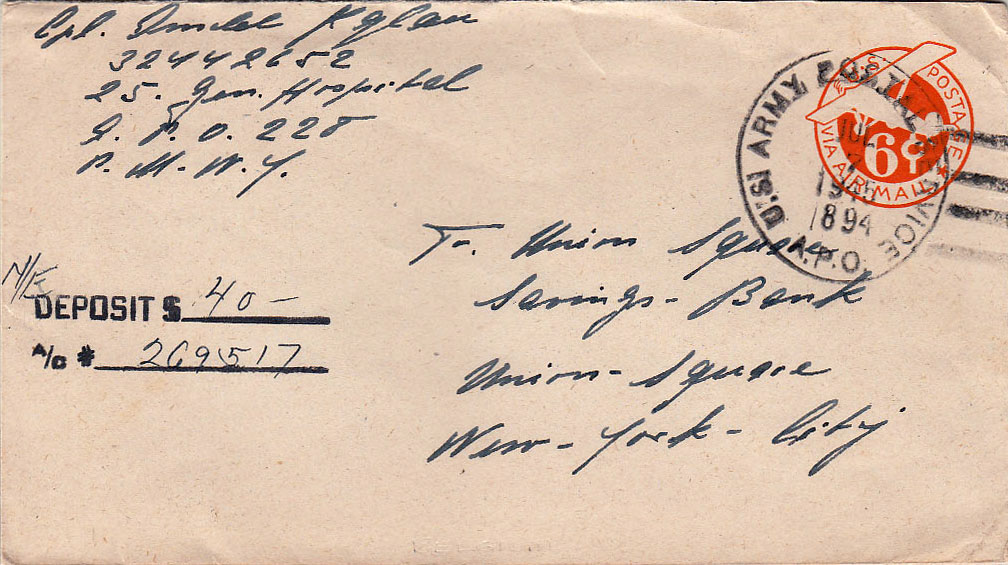 Cpl.
32442652
25. Gen. Hospital
A. P. O. 228
P. M. N. Y.
U.S. ARMY POSTAL SERVICE
JUL
1894
A.P.O.
U.S. POSTAGE
6¢
VIA AIR MAIL
To Union Square
Savings - Bank
Union - Square
New - York - City
DEPOSIT $ 40 -
A/C # 269517